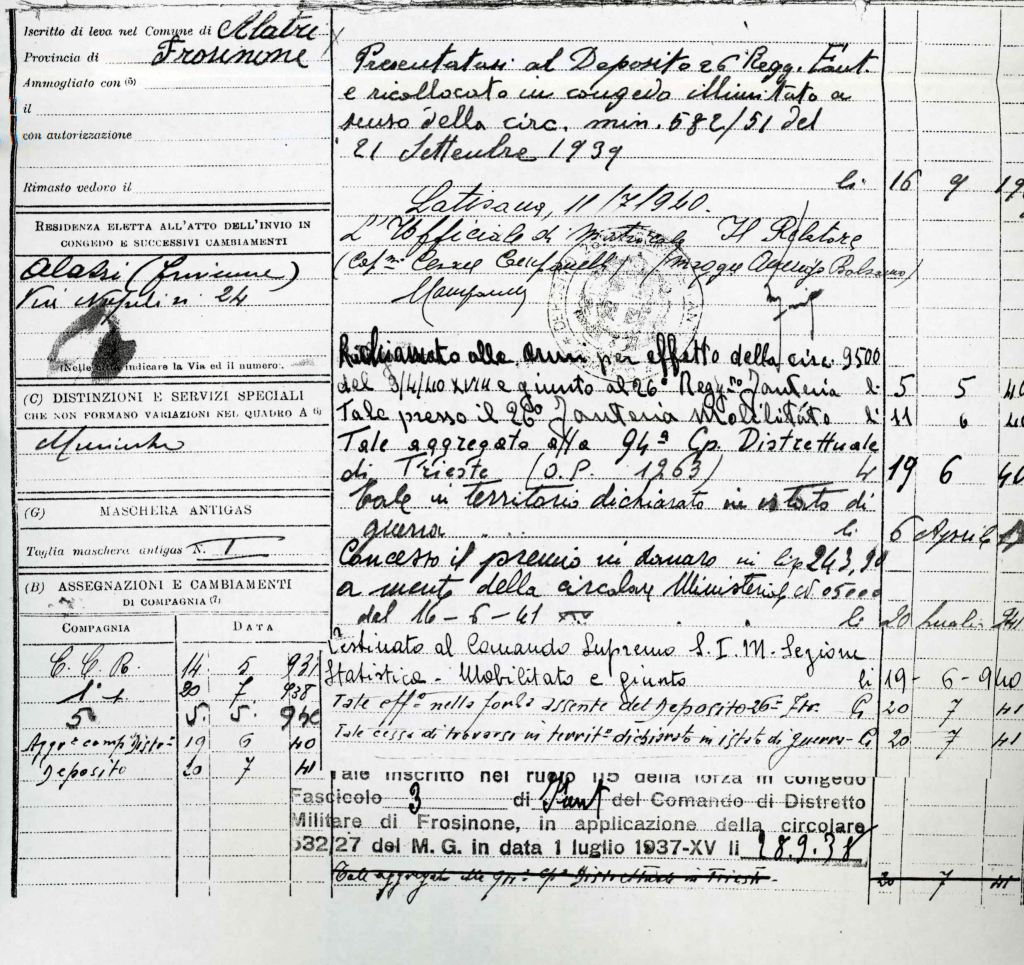 Iscritto di leva nel Comune di Alatri
Provincia di Frosinone
Ammogliato con (5)
il
con autorizzazione
Rimasto vedovo il
RESIDENZA ELETTA ALL'ATTO DELL'INVIO IN
CONGEDO E SUCCESSIVI CAMBIAMENTI
Alatri (Frosinone)
Via Napoli n. 24
(Nelle città indicare la Via ed il numero).
(C) DISTINZIONI E SERVIZI SPECIALI
CHE NON FORMANO VARIAZIONI NEL QUADRO A (6)
(G) MASCHERA ANTIGAS
Taglia maschera antigas N. I
(B) ASSEGNAZIONI E CAMBIAMENTI
DI COMPAGNIA (7)
COMPAGNIA DATA
C. C. R. 14 5 937
1ª 20 7 938
5 5. 5. 940
Aggr. comp Distr. 19 6 40
Deposito 20 7 41
Presentatosi al Deposito 26 Regg. Fant.
e ricollocato in congedo illimitato a
senso della circ. min. 682/51 del
21 Settembre 1939
li 16 9 19
Latisana, 11/7/1940.
L'Ufficiale di Matricola Il Relatore
Richiamato alle armi per effetto della circ. 9500
del 3/4/40 XVIII e giunto al 26° Regg.no Fanteria li 5 5 40
Tale presso il 26° Fanteria Mobilitato li 11 6 40
Tale aggregato alla 94ª Cp. Distrettuale
di Trieste (O.P. 1263) li 19 6 40
Tale in territorio dichiarato in istato di
guerra li 6 Aprile
Concesso il premio in danaro in 243,90
a mente della circolare Ministeriale 05000
del 16-6-41 li 20 Luglio 941
Destinato al Comando Supremo S. I. M. Sezione
Statistica - Mobilitato e giunto li 19 - 6 - 940
Tale eff. nella forza assente del Deposito 26° Ftr. li 20 7 41
Tale cessa di trovarsi in territ. dichiarato in istato di guerra - li 20 7 41
Tale inscritto nel ruolo 115 della forza in congedo
Fascicolo 3 di Fant del Comando di Distretto
Militare di Frosinone, in applicazione della circolare
532/27 del M. G. in data 1 luglio 1937-XV li 28.9.38
20 7 41